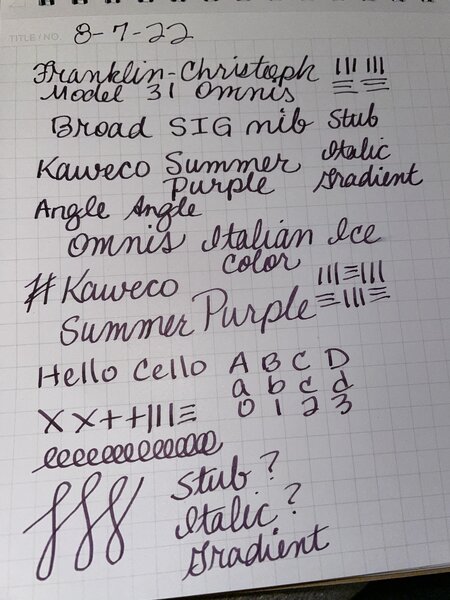 TITLE / NO. 8-7-22
Franklin-Christoph
Model 31 Omnis
Broad SIG nib Stub
Italic
Gradient
Kaweco Summer
Purple
Angle Angle
Omnis Italian Ice
color
#Kaweco
Summer Purple
Hello Cello A B C D
a b c d
0 1 2 3
X X + + | | |
eeeeeeeeeeeee
fff
Stub?
Italic?
Gradient